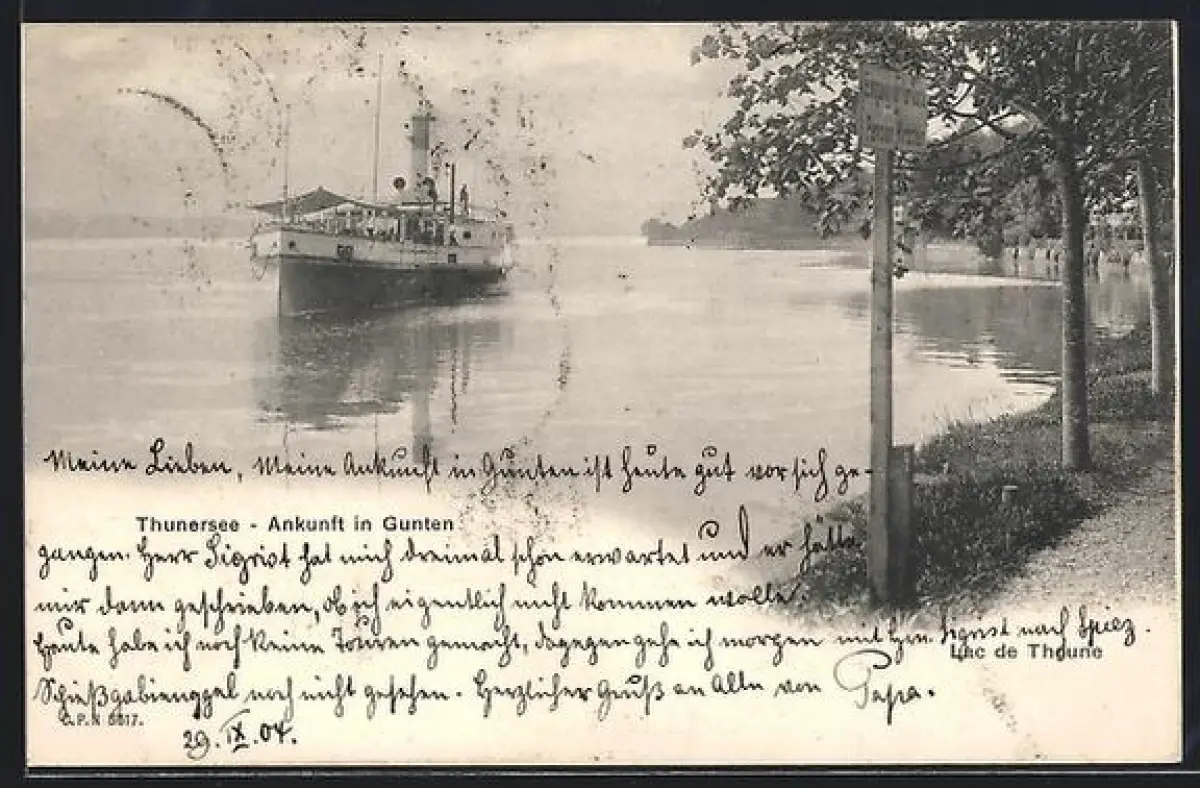 Meine Lieben, Meine Ankunft in Gunten ist heute gut vor sich ge-
Thunersee - Ankunft in Gunten
gangen. Herr Sigrist hat mich dreimal schon erwartet und er hätte
mir dann geschrieben, ob ich eigentlich nicht kommen wolle.
Heute habe ich noch keine Touren gemacht, dagegen gehe ich morgen mit Hrn. Sigrist nach Spiez.
Lac de Thoune
noch nicht gesehen. Herzlicher Gruß an Alle von Papa.
C.P.N 5617.
29. IX. 04.